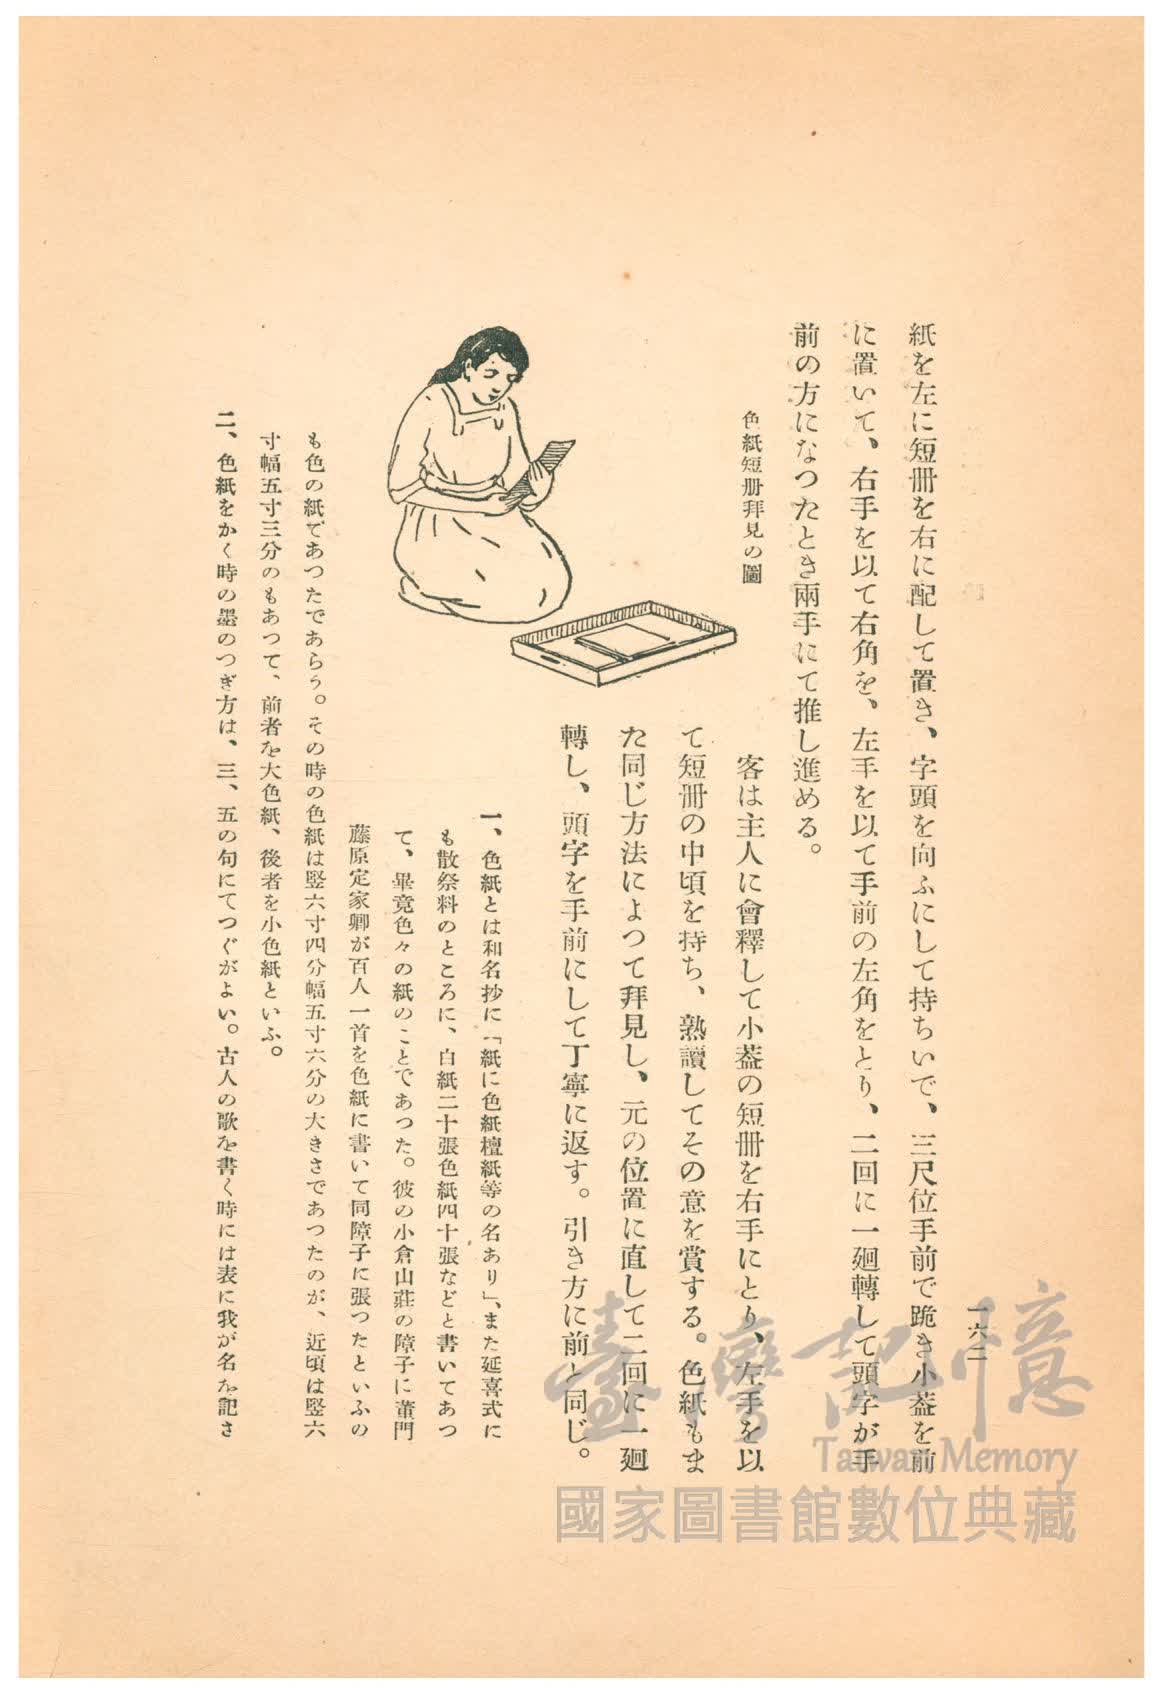 一六二
紙を左に短冊を右に配して置き、字頭を向ふにして持ちいで、三尺位手前で跪き小蓋を前
に置いて、右手を以て右角を、左手を以て手前の左角をとり、二回に一廻轉して頭字が手
前の方になつたとき兩手にて推し進める。
色紙短册拜見の圖
客は主人に會釋して小蓋の短冊を右手にとり、左手を以
て短冊の中頃を持ち、熟讀してその意を賞する。色紙もま
た同じ方法によつて拜見し、元の位置に直して二回に一廻
轉し、頭字を手前にして丁寧に返す。引き方に前と同じ。
一、色紙とは和名抄に「紙に色紙檀紙等の名あり」、また延喜式に
も散祭料のところに、白紙二十張色紙四十張などと書いてあつ
て、畢竟色々の紙のことであつた。彼の小倉山莊の障子に黄門
藤原定家卿が百人一首を色紙に書いて同障子に張つたといふの
も色の紙であつたであらう。その時の色紙は竪六寸四分幅五寸六分の大きさであつたのが、近頃は竪六
寸幅五寸三分のもあつて、前者を大色紙、後者を小色紙といふ。
二、色紙をかく時の墨のつぎ方は、三、五の句にてつぐがよい。古人の歌を書く時には表に我が名を記さ
臺灣記憶
Taiwan Memory
國家圖書館數位典藏